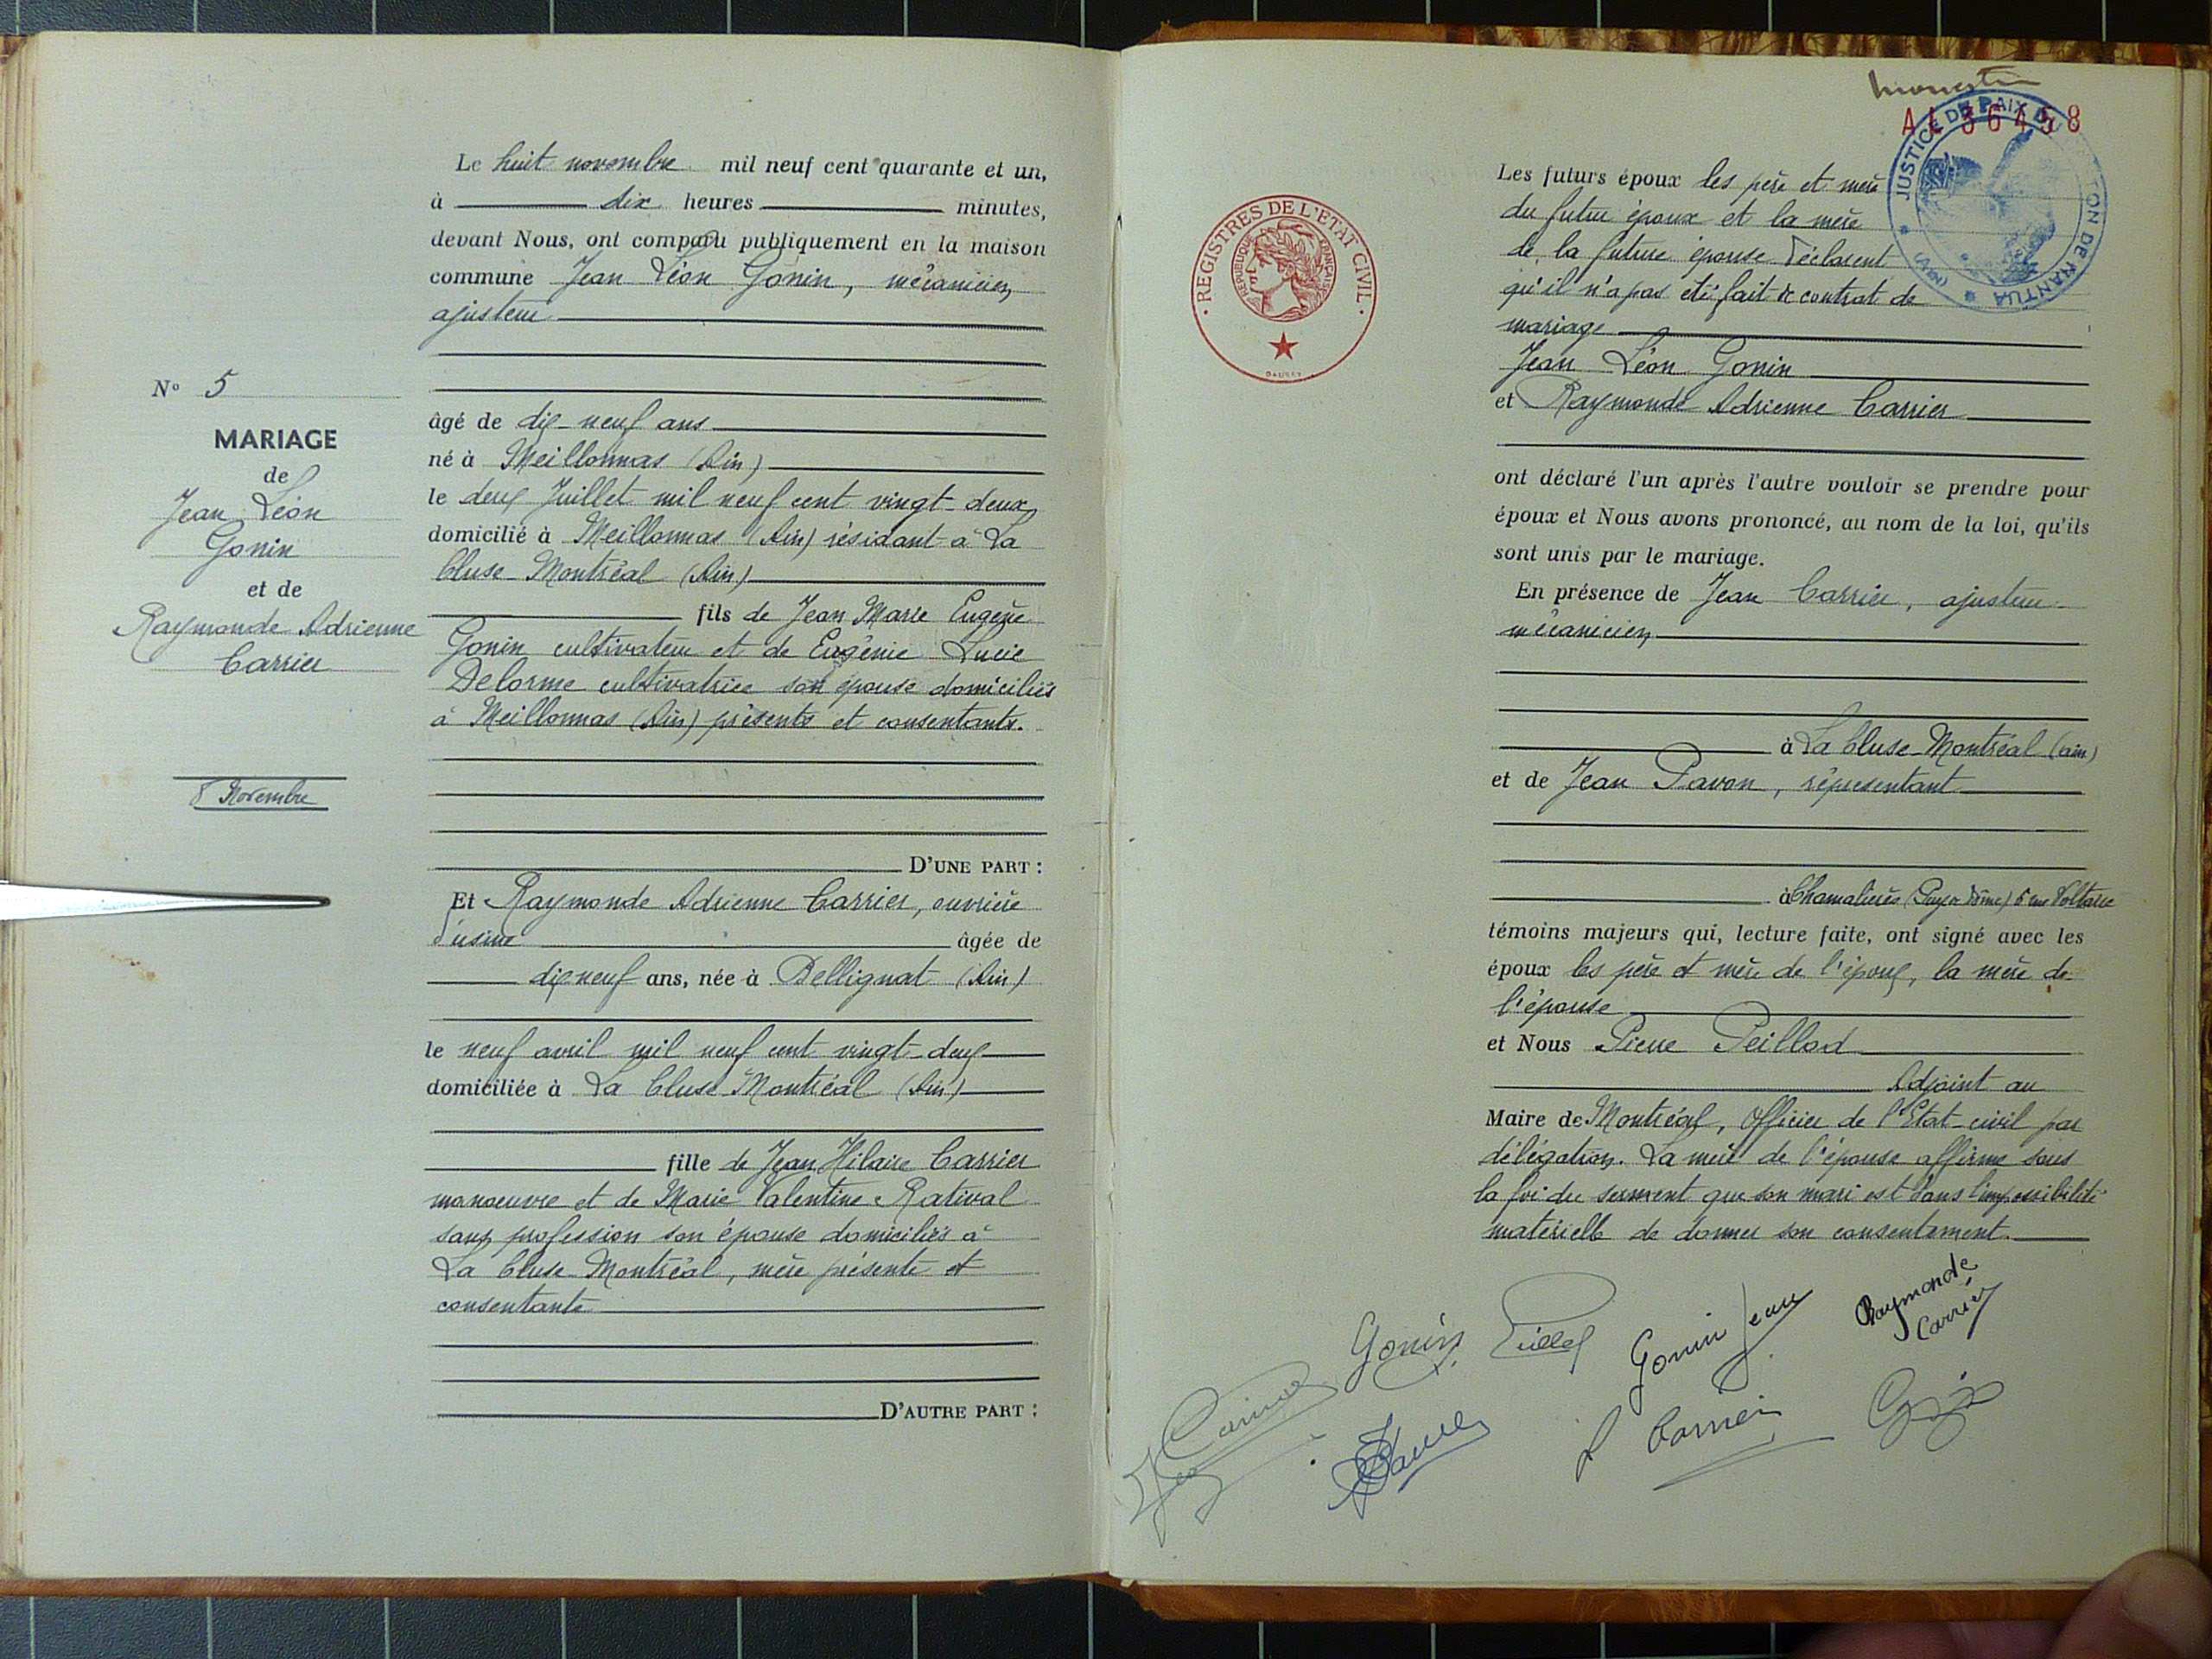 N° 5
MARIAGE
de
Jean Léon
Gonin
et de
Raymonde Adrienne
Carrier
8 Novembre
Le huit novembre mil neuf cent quarante et un,
à dix heures minutes,
devant Nous, ont comparu publiquement en la maison
commune Jean Léon Gonin, mécanicien
ajusteur
âgé de dix-neuf ans
né à Meillonnas (Ain)
le deux Juillet mil neuf cent vingt-deux
domicilié à Meillonnas (Ain) résidant à La
Cluse-Montréal (Ain)
fils de Jean Marie Eugène
Gonin cultivateur et de Eugénie Lucie
Delorme cultivatrice son épouse domiciliés
à Meillonnas (Ain) présents et consentants.
D'UNE PART :
Et Raymonde Adrienne Carrier, ouvrière
d'usine âgée de
dix neuf ans, née à Bellignat (Ain)
le neuf avril mil neuf cent vingt-deux
domiciliée à La Cluse-Montréal (Ain)
fille de Jean Hilaire Carrier
manoeuvre et de Marie Valentine Rativat
sans profession son épouse domiciliés à
La Cluse-Montréal, mère présente et
consentante
D'AUTRE PART :
A 36458
JUSTICE DE PAIX DU CANTON DE MANTUA
(AIN)
REGISTRES DE L'ÉTAT CIVIL
RÉPUBLIQUE FRANÇAISE
Les futurs époux les père et mère
du futur époux et la mère
de la future épouse déclarent
qu'il n'a pas été fait de contrat de
mariage
Jean Léon Gonin
et Raymonde Adrienne Carrier
ont déclaré l'un après l'autre vouloir se prendre pour
époux et Nous avons prononcé, au nom de la loi, qu'ils
sont unis par le mariage.
En présence de Jean Carrier, ajusteur-
mécanicien
à La Cluse-Montréal (Ain)
et de Jean Pavon, représentant
à Chamalières (Puy de Dôme) 6 rue Voltaire
témoins majeurs qui, lecture faite, ont signé avec les
époux les père et mère de l'époux, la mère de
l'épouse
et Nous Pierre Peillod
Adjoint au
Maire de Montréal, Officier de l'Etat-civil par
délégation. La mère de l'épouse affirme sous
la foi du serment que son mari est dans l'impossibilité
matérielle de donner son consentement.
Gonin
Gonin Jean
Raymonde
Carrier
Carrier